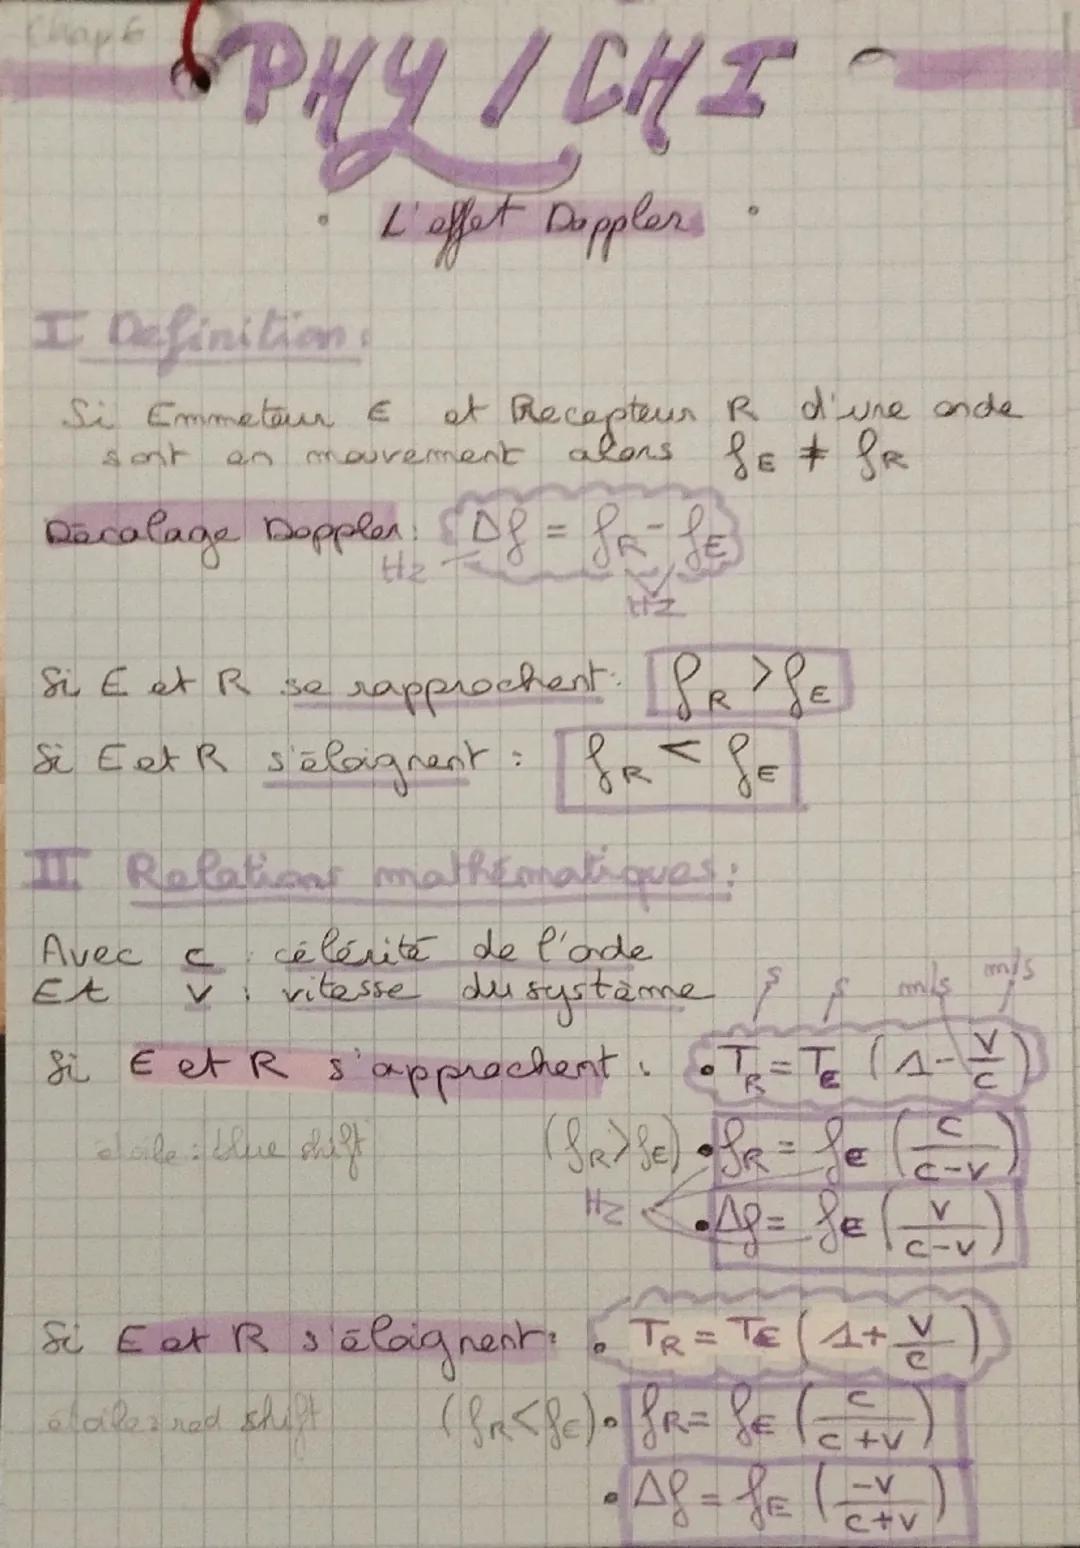 Chap 6
PHY / CHI
L'effet Doppler
I Definition:
Si Emmeteur E et Recepteur R d'une onde
sont en mouvement alors fE ≠ fR
Décalage Doppler: Δf = fR - fE
Hz
Hz
Si E et R se rapprochent: fR > fE
Si E et R s'éloignent: fR < fE
II Relations mathématiques:
Avec c : célérité de l'ode
Et v : vitesse du système
s s m/s m/s
Si E et R s'approchent: • TR = TE (1 - v/c)
étoile: blue shift (fR > fE) • fR = fE (c/(c-v))
Hz • Δf = fE (v/(c-v))
Si E et R s'éloignent: • TR = TE (1 + v/c)
étoile: red shift (fR < fE) • fR = fE (c/(c+v))
• Δf = fE (-v/(c+v))